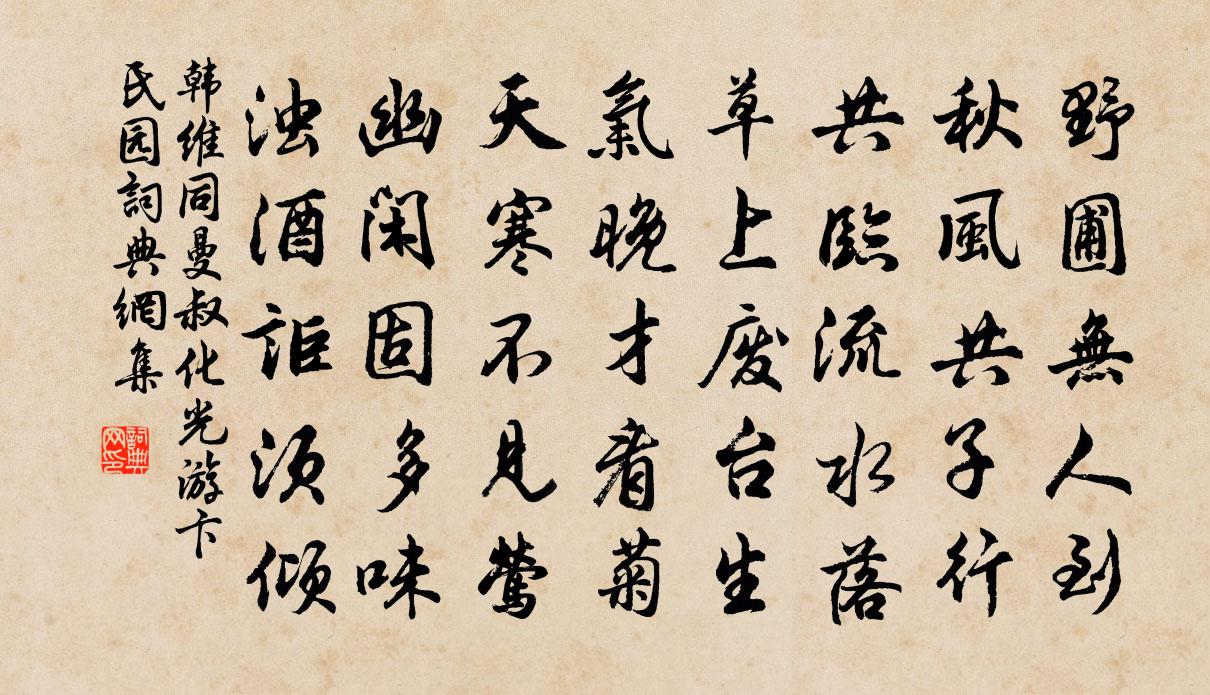 野圃無人到
秋風共子行
共臨流水落
草上废台生
氣晚才看菊
天寒不見鶯
幽闲固多味
浊酒詎须倾
韩维同曼叔化光游卞
氏园詞典網集
詞典
网印